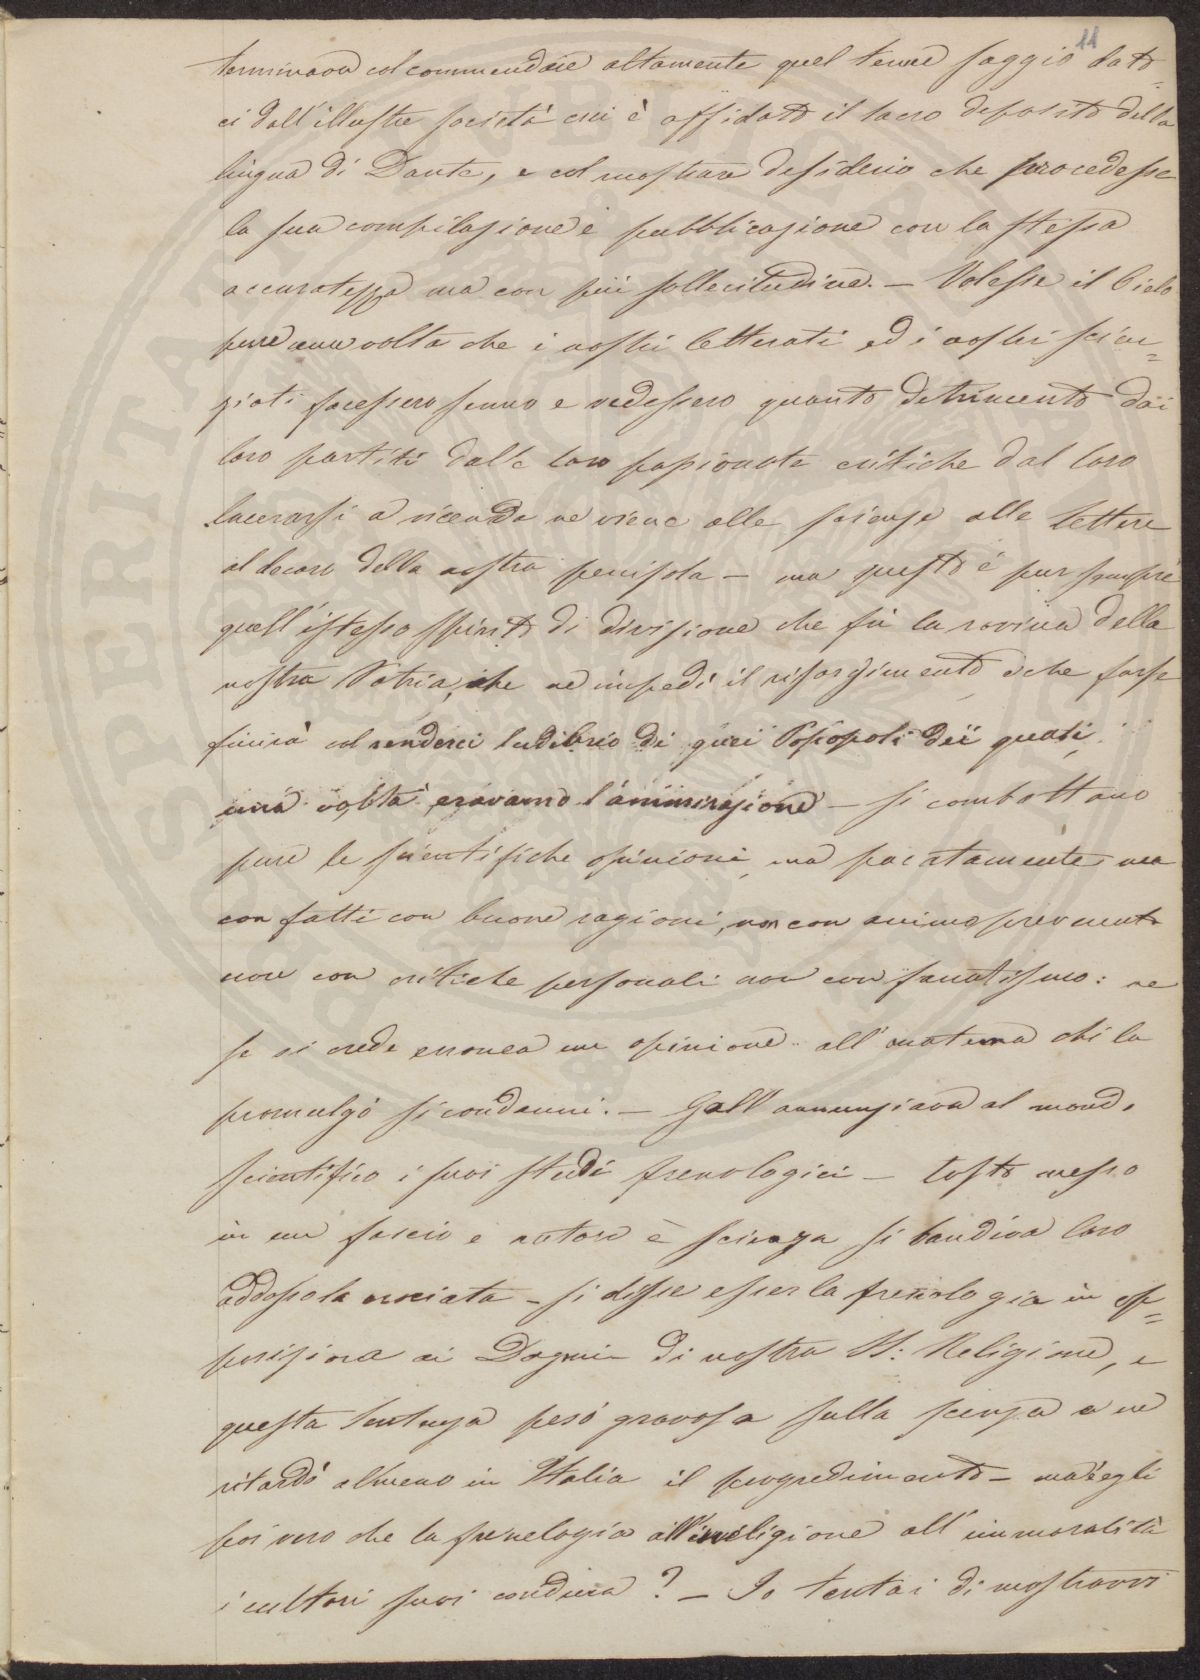 11
terminava col commendare altamente quel tenue saggio dato=
ci dall'illustre società cui è affidato il sacro deposito della
lingua di Dante, e col mostrare desiderio che procedesse
la sua compilazione e pubblicazione con la stessa
accuratezza ma con più sollecitudine. — Volesse il Cielo
pure una volta che i nostri letterati ed i nostri scien=
ziati facessero senno e vedessero quanto detrimento dai
loro partiti dalle loro passionate critiche dal loro
lacerarsi a vicenda ne viene alle scienze alle lettere
al decoro della nostra penisola — ma questo è pur sempre
quell'istesso spirito di divisione che fu la rovina della
nostra Patria, che ne impedì il risorgimento e che forse
finirà col renderci ludibrio di quei Popopoli dei quali
una volta eravamo l'ammirazione — si combattano
pure le scientifiche opinioni, ma pacatamente ma
con fatti con buone ragioni, non con animo prevenuto
non con critiche personali non con fanatismo: ne
se si crede erronea un opinione all'anatema chi la
promulgò si condanni. — Gall annunziava al mondo
scientifico i suoi studi frenologici — tosto messo
in un fascio e autore e scienza si bandiva loro
addosso la crociata — si disse esser la frenologia in op=
posizione ai Dogmi di nostra S: Religione, e
questa sentenza pesò gravosa sulla scienza e ne
ritardò almeno in Italia il progredimento — ma è egli
poi vero che la frenelogia all'irreligione all'immoralità
i cultori suoi conduca? — Io tentai di mostrarvi